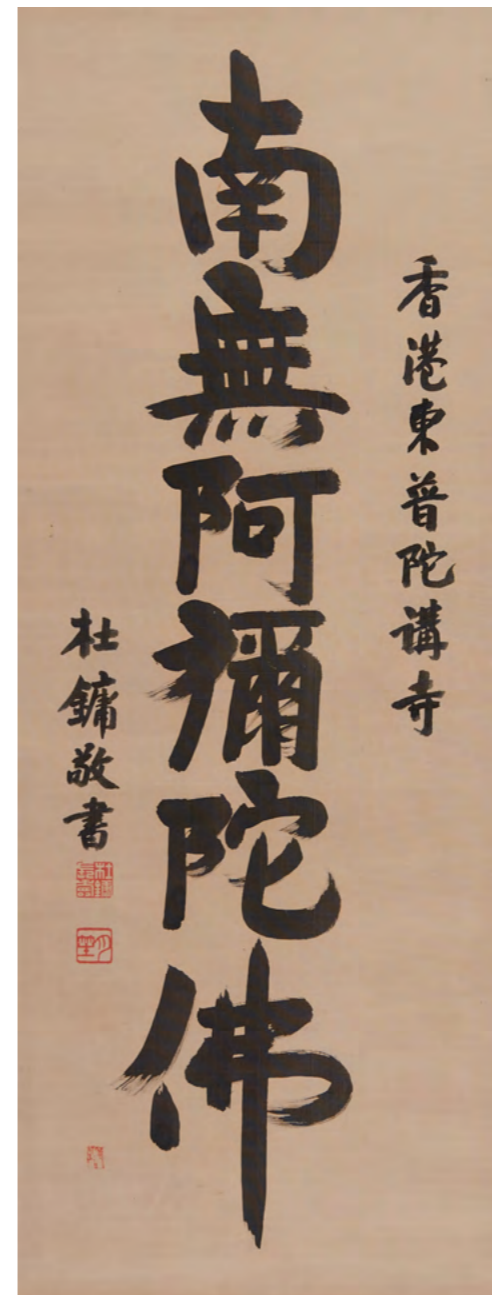 香港東普陀講寺
南無阿彌陀佛
杜鏞敬書